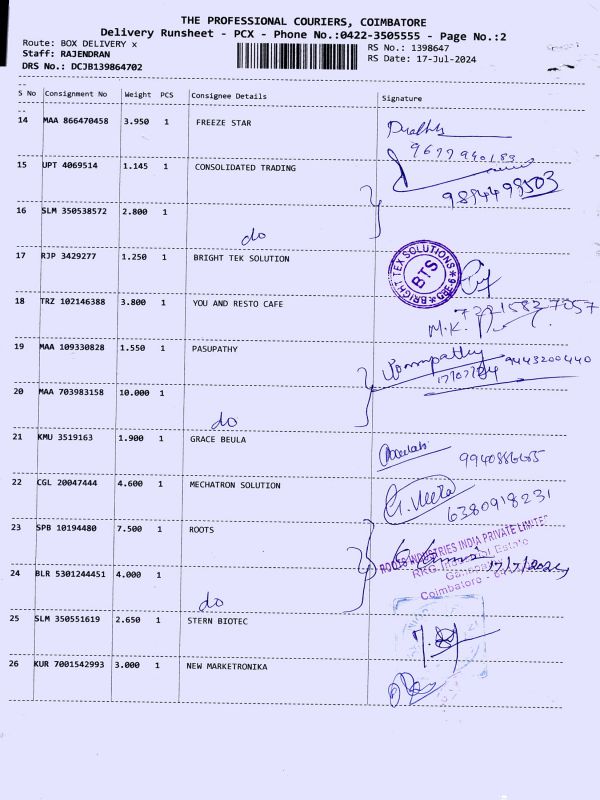 THE PROFESSIONAL COURIERS, COIMBATORE
Delivery Runsheet - PCX - Phone No.:0422-3505555 - Page No.:2
Route: BOX DELIVERY x
RS No.: 1398647
Staff: RAJENDRAN
RS Date: 17-Jul-2024
DRS No.: DCJB139864702
S No Consignment No Weight PCS Consignee Details Signature
14 MAA 866470458 3.950 1 FREEZE STAR
15 UPT 4069514 1.145 1 CONSOLIDATED TRADING
9894499503
16 SLM 350538572 2.800 1 do
17 RJP 3429277 1.250 1 BRIGHT TEK SOLUTION
BRIGHT TEX SOLUTIONS
BTS
CBE-6
18 TRZ 102146388 3.800 1 YOU AND RESTO CAFE
M.K.
19 MAA 109330828 1.550 1 PASUPATHY
9443200440
20 MAA 703983158 10.000 1 do
21 KMU 3519163 1.900 1 GRACE BEULA
22 CGL 20047444 4.600 1 MECHATRON SOLUTION
G. Veera
6380918231
23 SPB 10194480 7.500 1 ROOTS
ROOTS INDUSTRIES INDIA PRIVATE LIMITED
RKG Industrial Estate
17/7/2024
Coimbatore -
24 BLR 5301244451 4.000 1 do
25 SLM 350551619 2.650 1 STERN BIOTEC
26 KUR 7001542993 3.000 1 NEW MARKETRONIKA